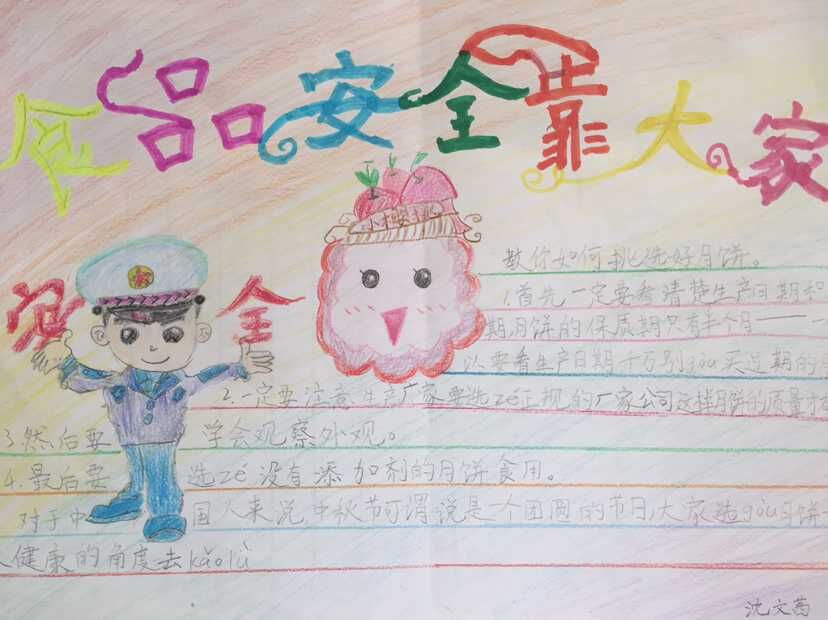 食品安全靠大家
安全
小樱桃
教你如何挑选好月饼。
1.首先一定要看清楚生产日期和
期,月饼的保质期只有半个月——一
以要看生产日期千万别gòu买过期的
2.一定要注意生产厂家,要选zé正规的厂家公司这样月饼的质量才
3.然后要学会观察外观。
4.最后要选zé没有添加剂的月饼食用。
对于中国人来说中秋节可谓说是一个团圆的节日,大家选gòu月饼
健康的角度去kǎolǜ
沈文